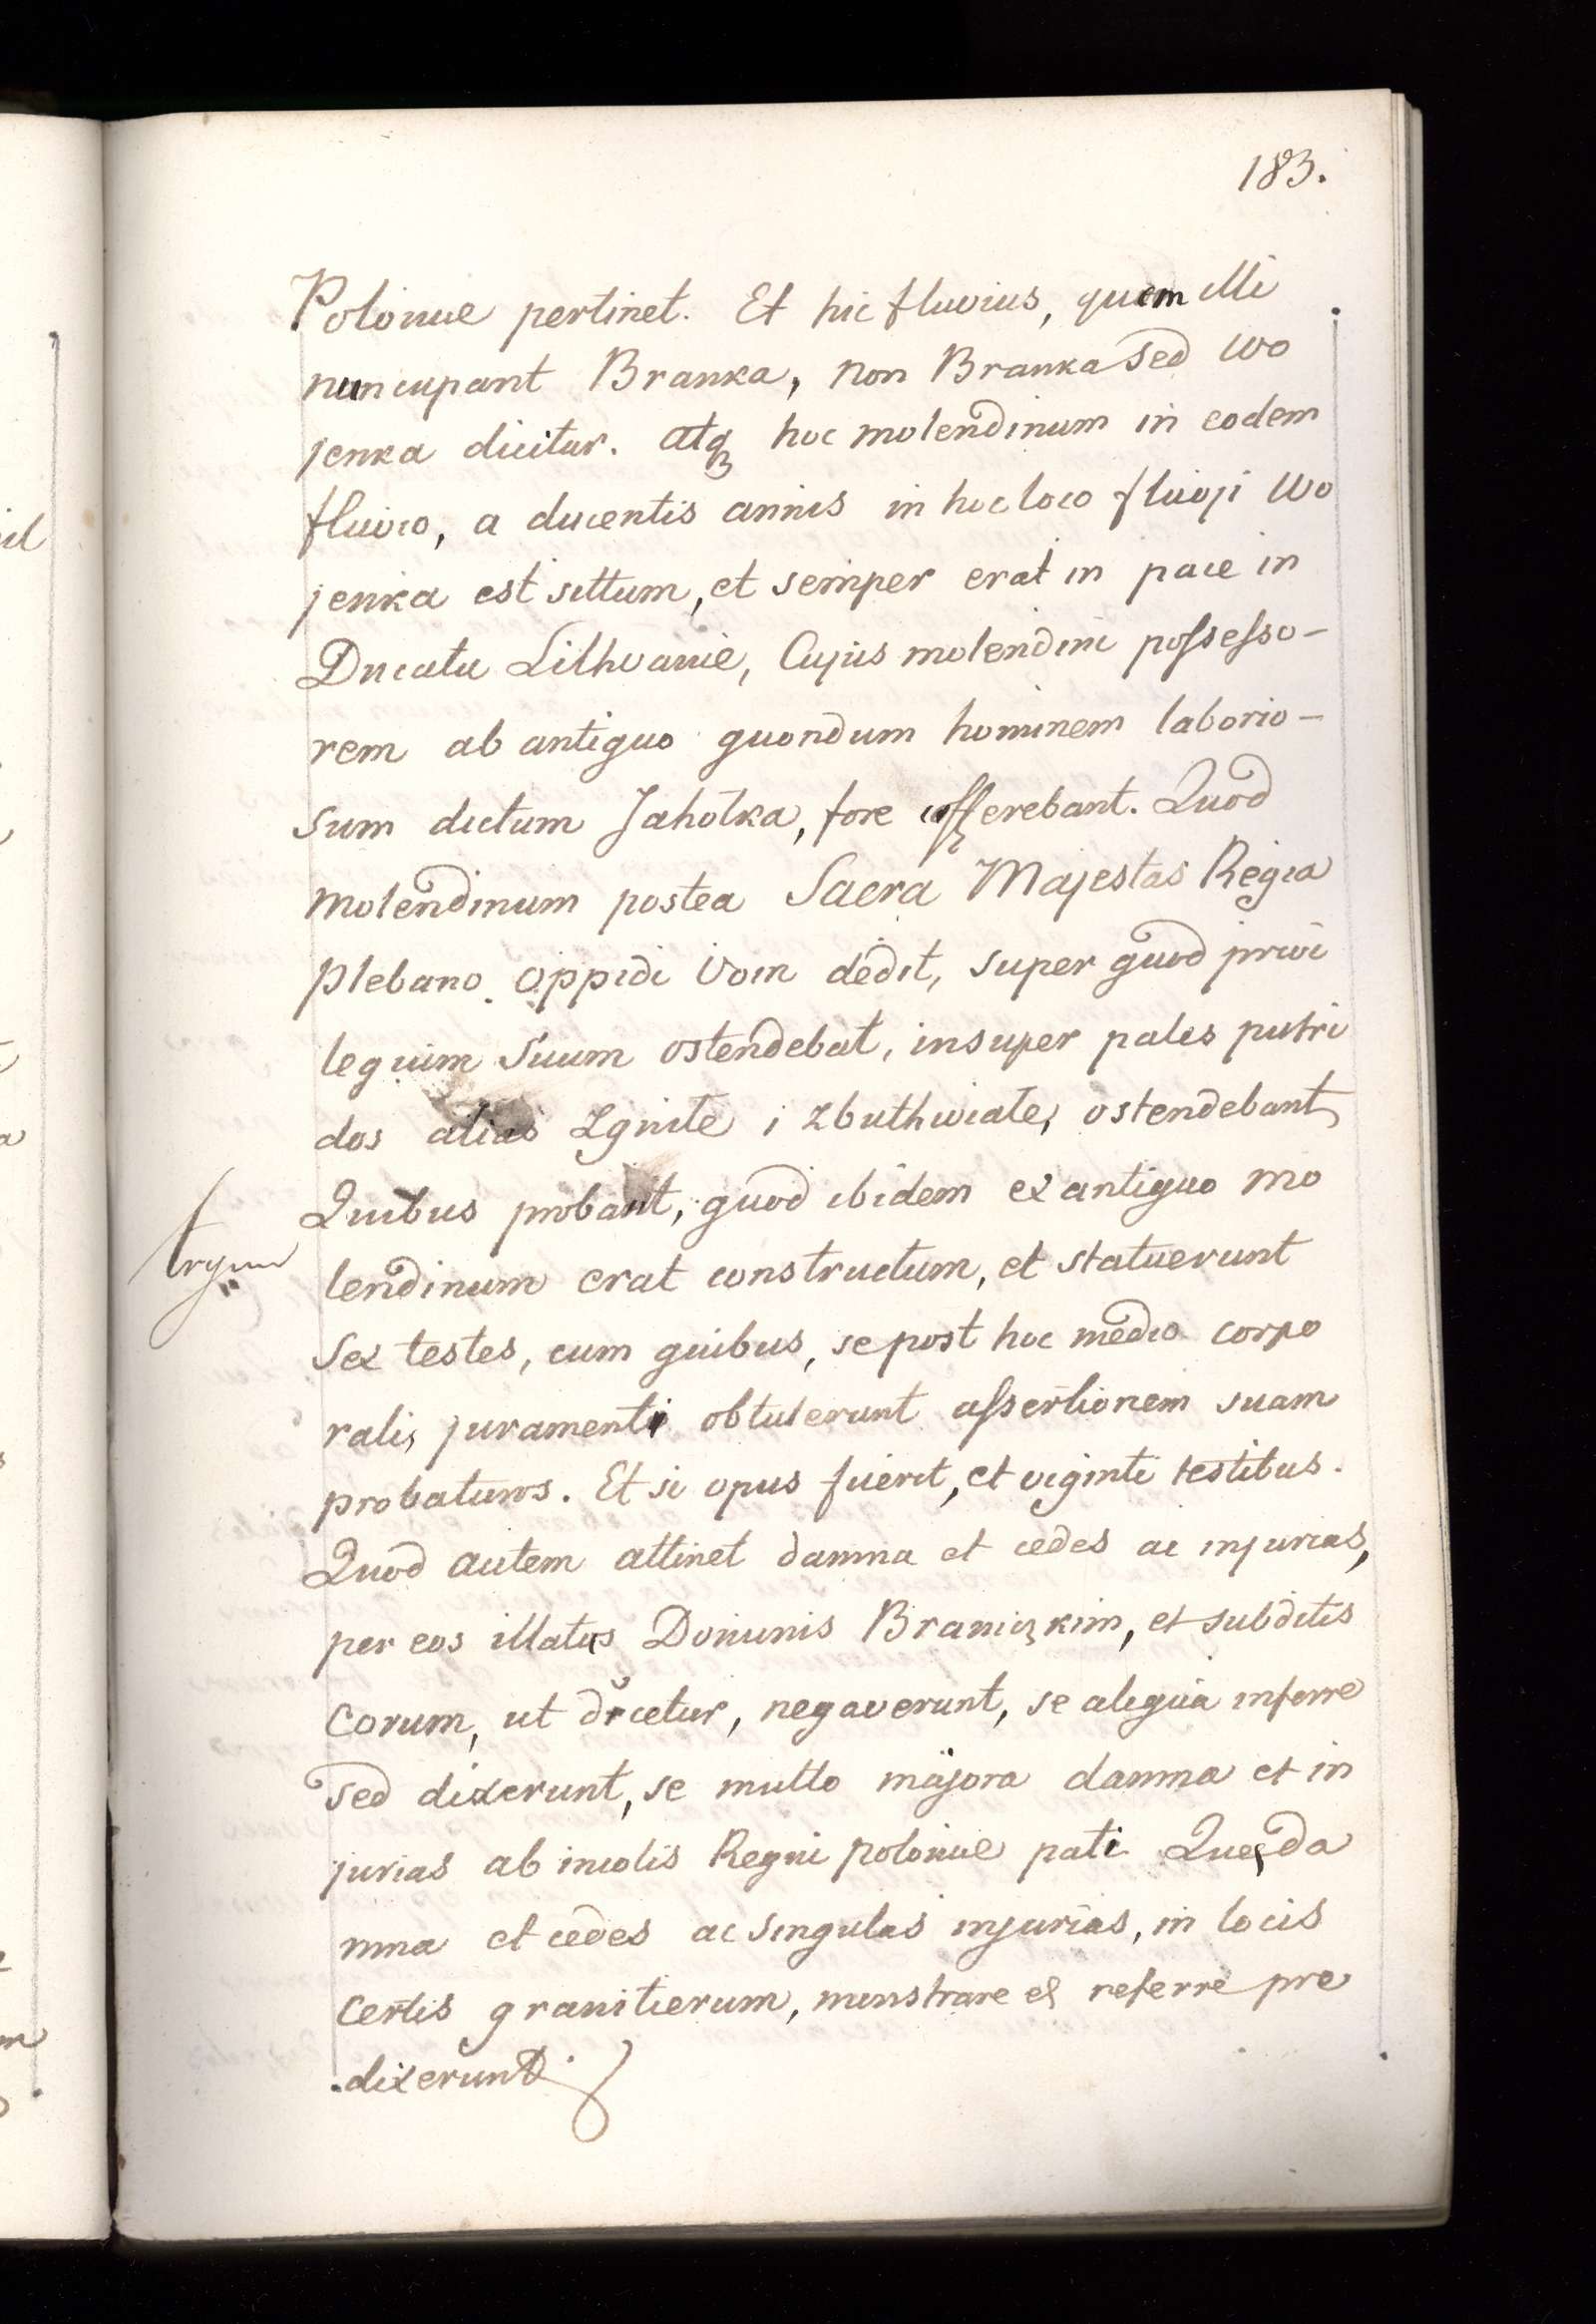 183.
Polonue pertinet. Et hic fluvius, quem illi
nuncupant Branka, non Branka sed Wo
jenka dicitur. Atq hoc molendinum in eodem
fluvio, a ducentis annis in hoc loco fluvji Wo
jenka est sittum, et semper erat in pace in
Ducatu Lithvanie, Cujus molendini possesso-
rem ab antiquo quondum hominem laborio-
sum dictum Jahołka, fore asserebant. Quod
molendinum postea Sacra Majestas Regia
plebano oppidi Voin dedit, super quod privi
legium suum ostendebat, insuper pales putri
dos alias Zgnite i zbuthwiate, ostendebant,
Quibus probant, quod ibidem ex antiquo mo
lendinum erat constructum, et statuerunt
Sex testes, cum quibus, se post hoc medio corpo
ralis juramenti obtulerunt assertionem suam
probaturos. Et si opus fuerit, et viginti testibus.
Quod autem attinet damna et cedes ac injurias,
per eos illatas Dominis Branickim, et subditis
eorum, ut dicetur, negaverunt, se aliquia inferre
sed dixerunt, se multo majora damna et in
jurias ab incolis Regni polonue pati Que da
mna et cedes ac singulas injurias, in locis
certis granitierum, monstrare et referre pre
dixerunt.